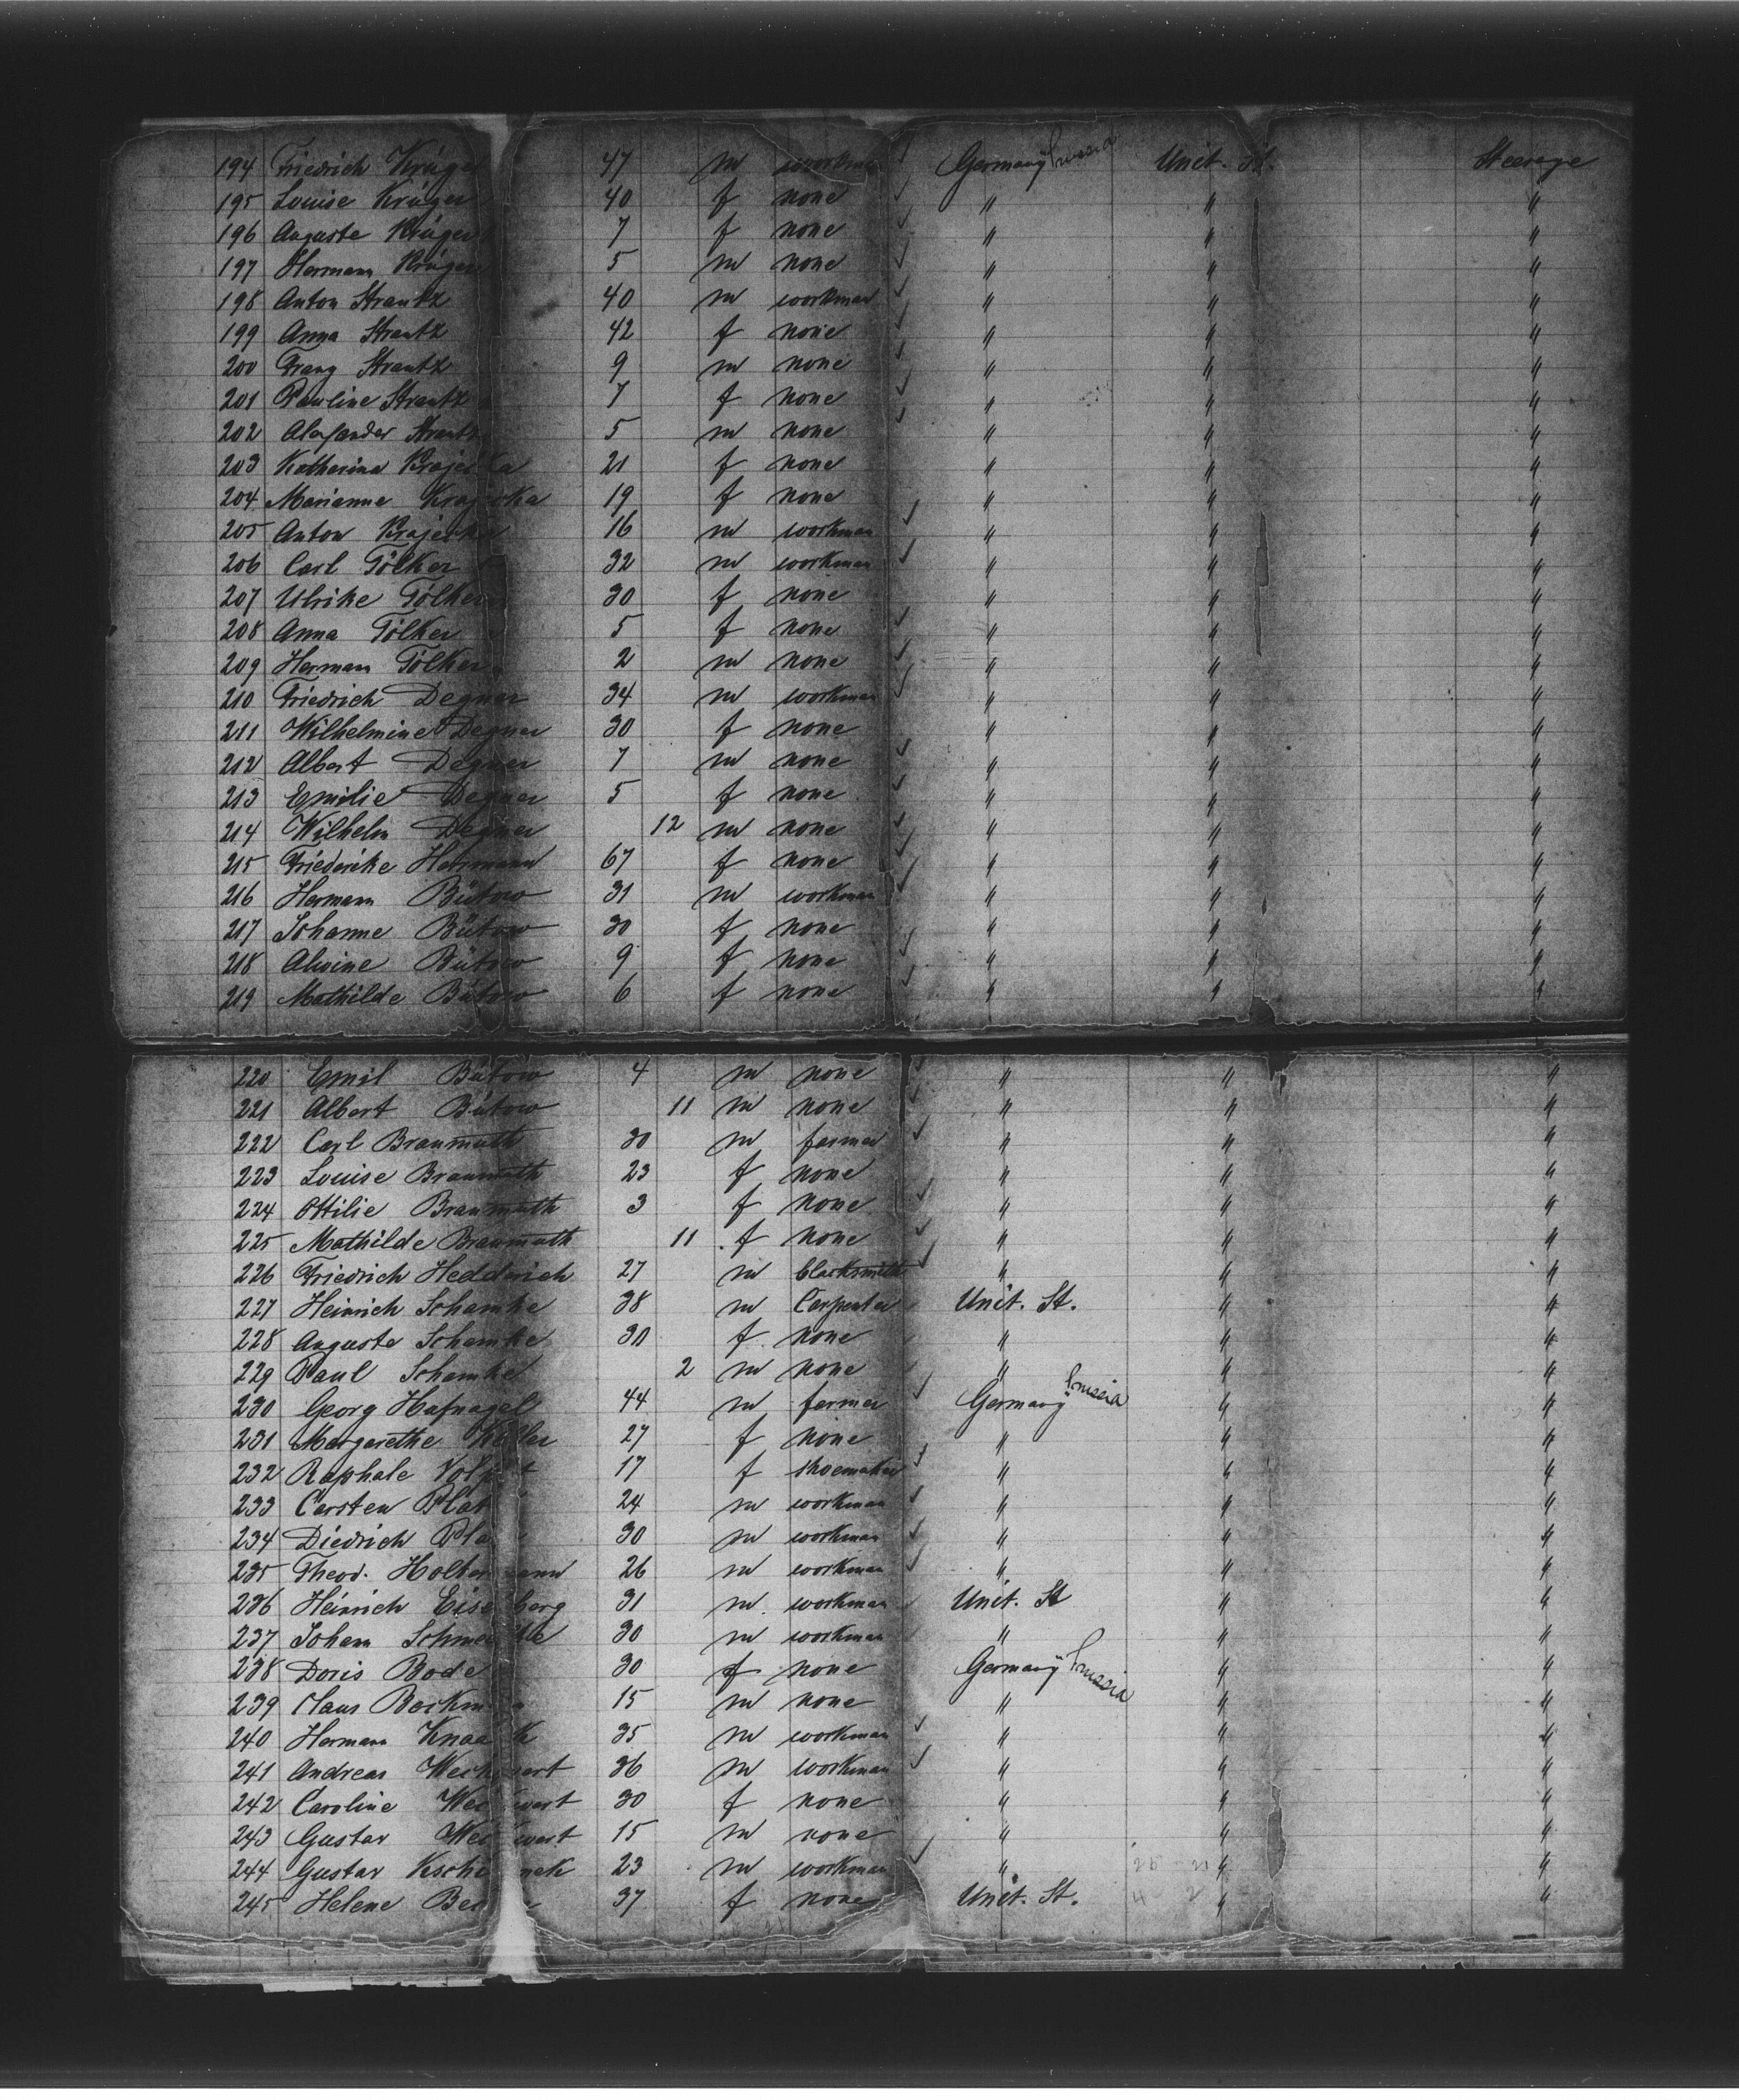 194 Friedrich Krüger 47 m workman Germany Prussia Unit. St. Steerage
195 Louise Krüger 40 f none " " "
196 Auguste Krüger 7 f none " " "
197 Hermann Krüger 5 m none " " "
198 Anton Strantz 40 m workman " " "
199 Anna Strantz 42 f none " " "
200 Franz Strantz 9 m none " " "
201 Pauline Strantz 7 f none " " "
202 Alexander Strantz 5 m none " " "
203 Katharina 21 f none " " "
204 Marianne 19 f none " " "
205 Anton 16 m workman " " "
206 Carl Tölker 32 m workman " " "
207 Ulrike Tölker 30 f none " " "
208 Anna Tölker 5 f none " " "
209 Herman Tölker 2 m none " " "
210 Friedrich Degner 34 m workman " " "
211 Wilhelmine Degner 30 f none " " "
212 Albert Degner 7 m none " " "
213 Emilie Degner 5 f none " " "
214 Wilhelm Degner 12 m none " " "
215 Friederike Hermann 67 f none " " "
216 Hermann Bütow 31 m workman " " "
217 Johanne Bütow 30 f none " " "
218 Alwine Bütow 9 f none " " "
219 Mathilde Bütow 6 f none " " "
220 Emil Bütow 4 m none " " "
221 Albert Bütow 11 m none " " "
222 Carl Braumuth 30 m farmer " " "
223 Louise Braumuth 23 f none " " "
224 Ottilie Braumuth 3 f none " " "
225 Mathilde Braumuth 11 f none " " "
226 Friedrich Hedderich 27 m blacksmith " " "
227 Heinrich Schamke 38 m Carpenter Unit. St. " "
228 Auguste Schamke 30 f none " " "
229 Paul Schamke 2 m none " " "
230 Georg Hafnagel 44 m farmer Germany Prussia " "
231 Margarethe 27 f none " " "
232 Raphale 17 f shoemaker " " "
233 Carsten 24 m workman " " "
234 Diedrich 30 m workman " " "
235 Theod. 26 m workman " " "
236 Heinrich 31 m workman Unit. St " "
237 Johann 30 m workman " " "
238 Doris Bode 30 f none Germany Prussia " "
239 Claus 15 m none " " "
240 Hermann 35 m workman " " "
241 Andreas 36 m workman " " "
242 Caroline 30 f none " " "
243 Gustav 15 m none " " "
244 Gustav 23 m workman " " "
245 Helene 37 f none Unit. St. " "